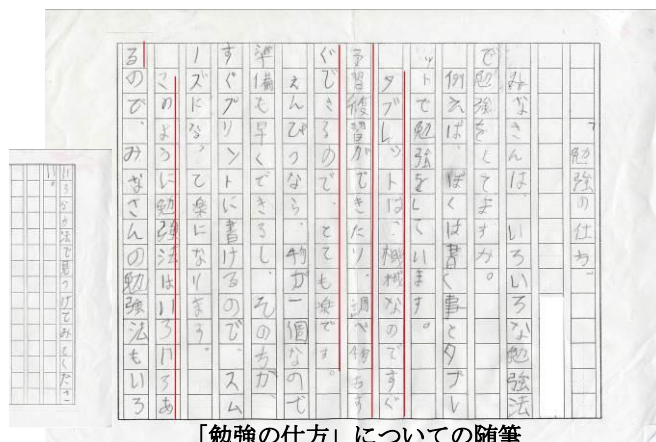 「勉強の仕方」
みなさんは、いろいろな勉強法
で勉強をしてますか。
例えば、ぼくは書く事とタブレ
ットで勉強をしています。
タブレットは、機械なのですぐ
予習復習ができたり、調べ物もす
ぐできるので、とても楽です。
えんぴつなら、物が一個なので
準備も早くできるし、そのちが、
すぐプリントに書けるので、スム
ーズになって楽になります。
このように勉強法はいろいろあ
るので、みなさんの勉強法もいろ
いろな方法で見つけてみてくださ
い。
「勉強の仕方」についての随筆